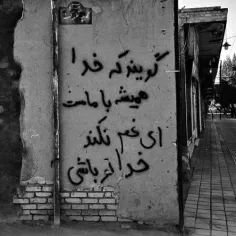 گویند که خدا
همیشه با ماست
ای غم نکند
خدا تو باشی